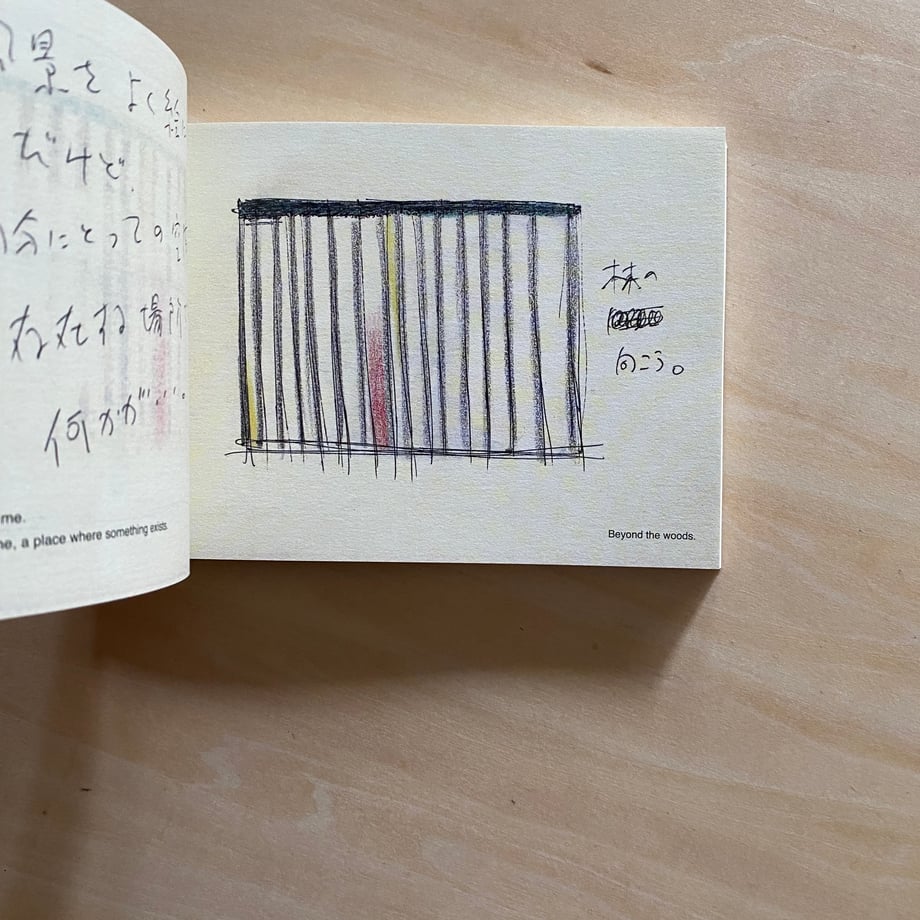 景を よく
だけど、
分にとっての
場所
何かが…。
me.
, a place where something exists
林の
向こう。
Beyond the woods.